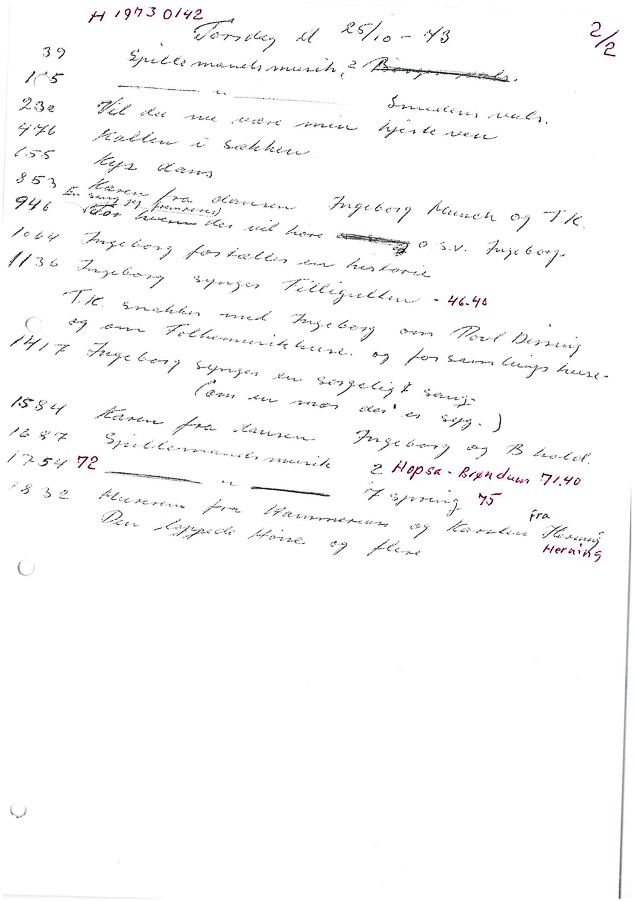 H 1973 0142
2/2
Torsdag d 25/10 - 73
39 Spillemandsmusik, 2
105 — " — Smedens vals.
232 Vil du nu være min hjerte ven
446 Katten i sækken
655 Kys dans
853 Karen fra dansen Ingeborg Munch og T.K.
En sang jeg
946 der vil høre o.s.v. Ingeborg.
1064 Ingeborg fortæller en historie
1136 Ingeborg synger Tilligutten - 46.40
T.K. snakker med Ingeborg om Poul Dissing
og om Folkemusikhuse. og forsamlingshuse.
1417 Ingeborg synger en sørgelig sang
(om en mor der er syg.)
1584 Karen fra dansen Ingeborg og B hold.
1687 Spillemandsmusik 2 Hopsa - Brøndum 71.40
1754 72 — " — 7 spring 75
1832 fra Hammerum og Karsten fra Herning
Herning
Den lappede Hose og flere